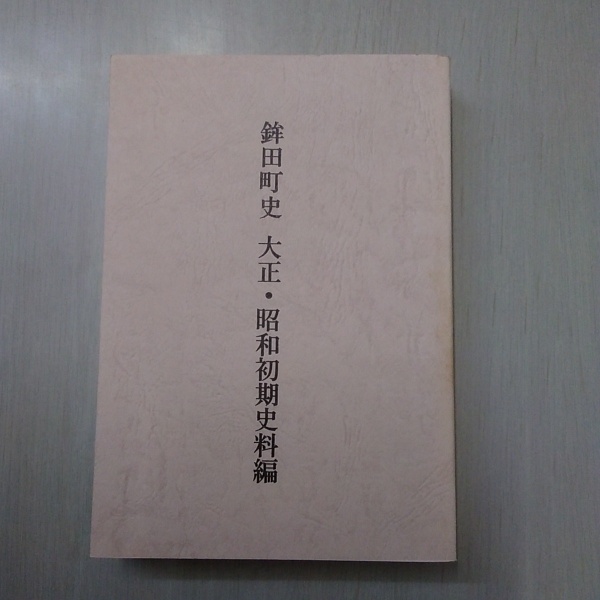 鉾田町史 大正・昭和初期史料編